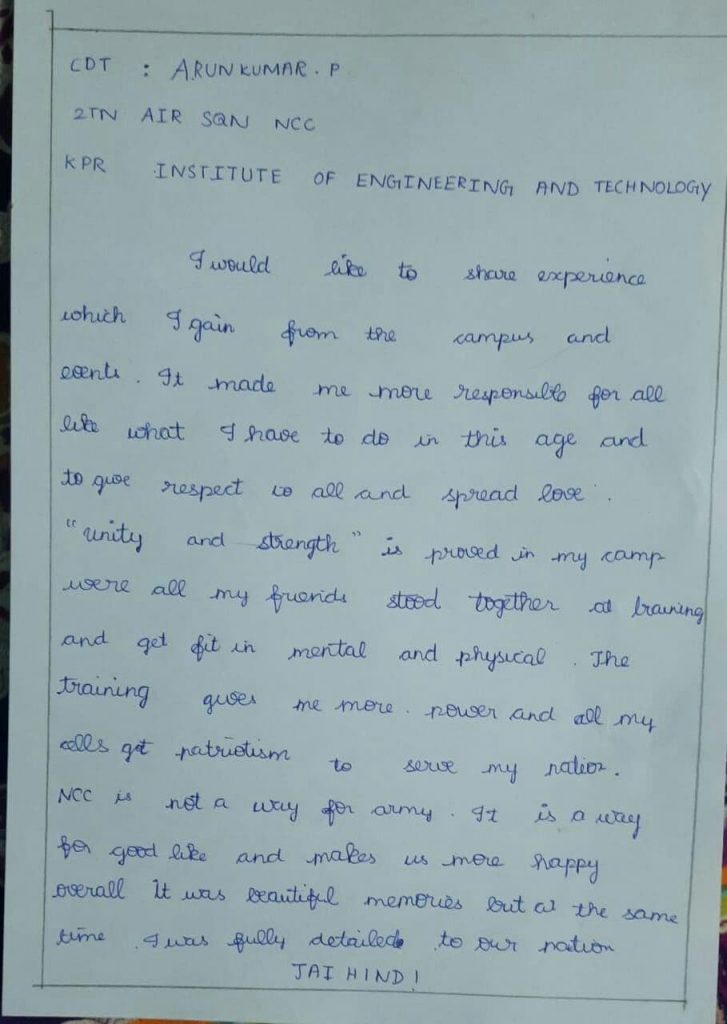 CDT : ARUNKUMAR. P
2TN AIR SQN NCC
KPR INSTITUTE OF ENGINEERING AND TECHNOLOGY
I would like to share experience
which I gain from the campus and
events. It made me more responsible for all
like what I have to do in this age and
to give respect to all and spread love.
"unity and strength" is proved in my camp
were all my friends stood together at training
and get fit in mental and physical. The
training gives me more. power and all my
cells got patriotism to serve my nation.
NCC is not a way for army. It is a way
for good like and makes us more happy
overall It was beautiful memories but at the same
time. I was fully detailed to our nation
JAI HIND!